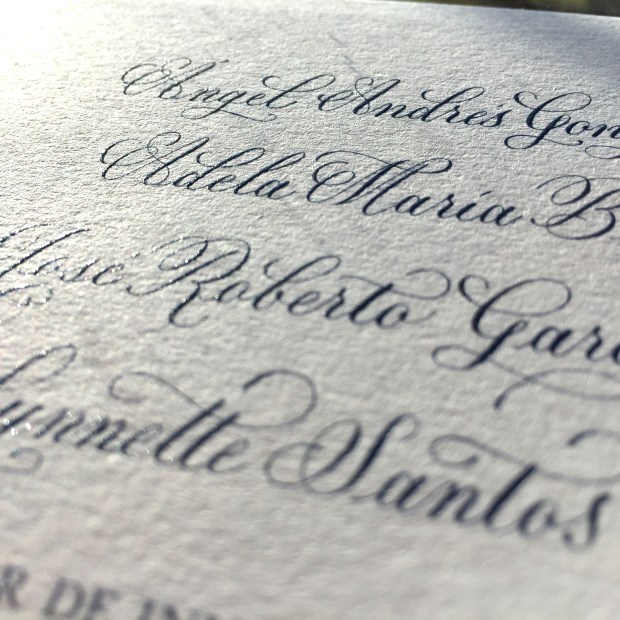 Ángel Andrés Gon
Adela María B
José Roberto Gar
ynnette Santos
R DE IN